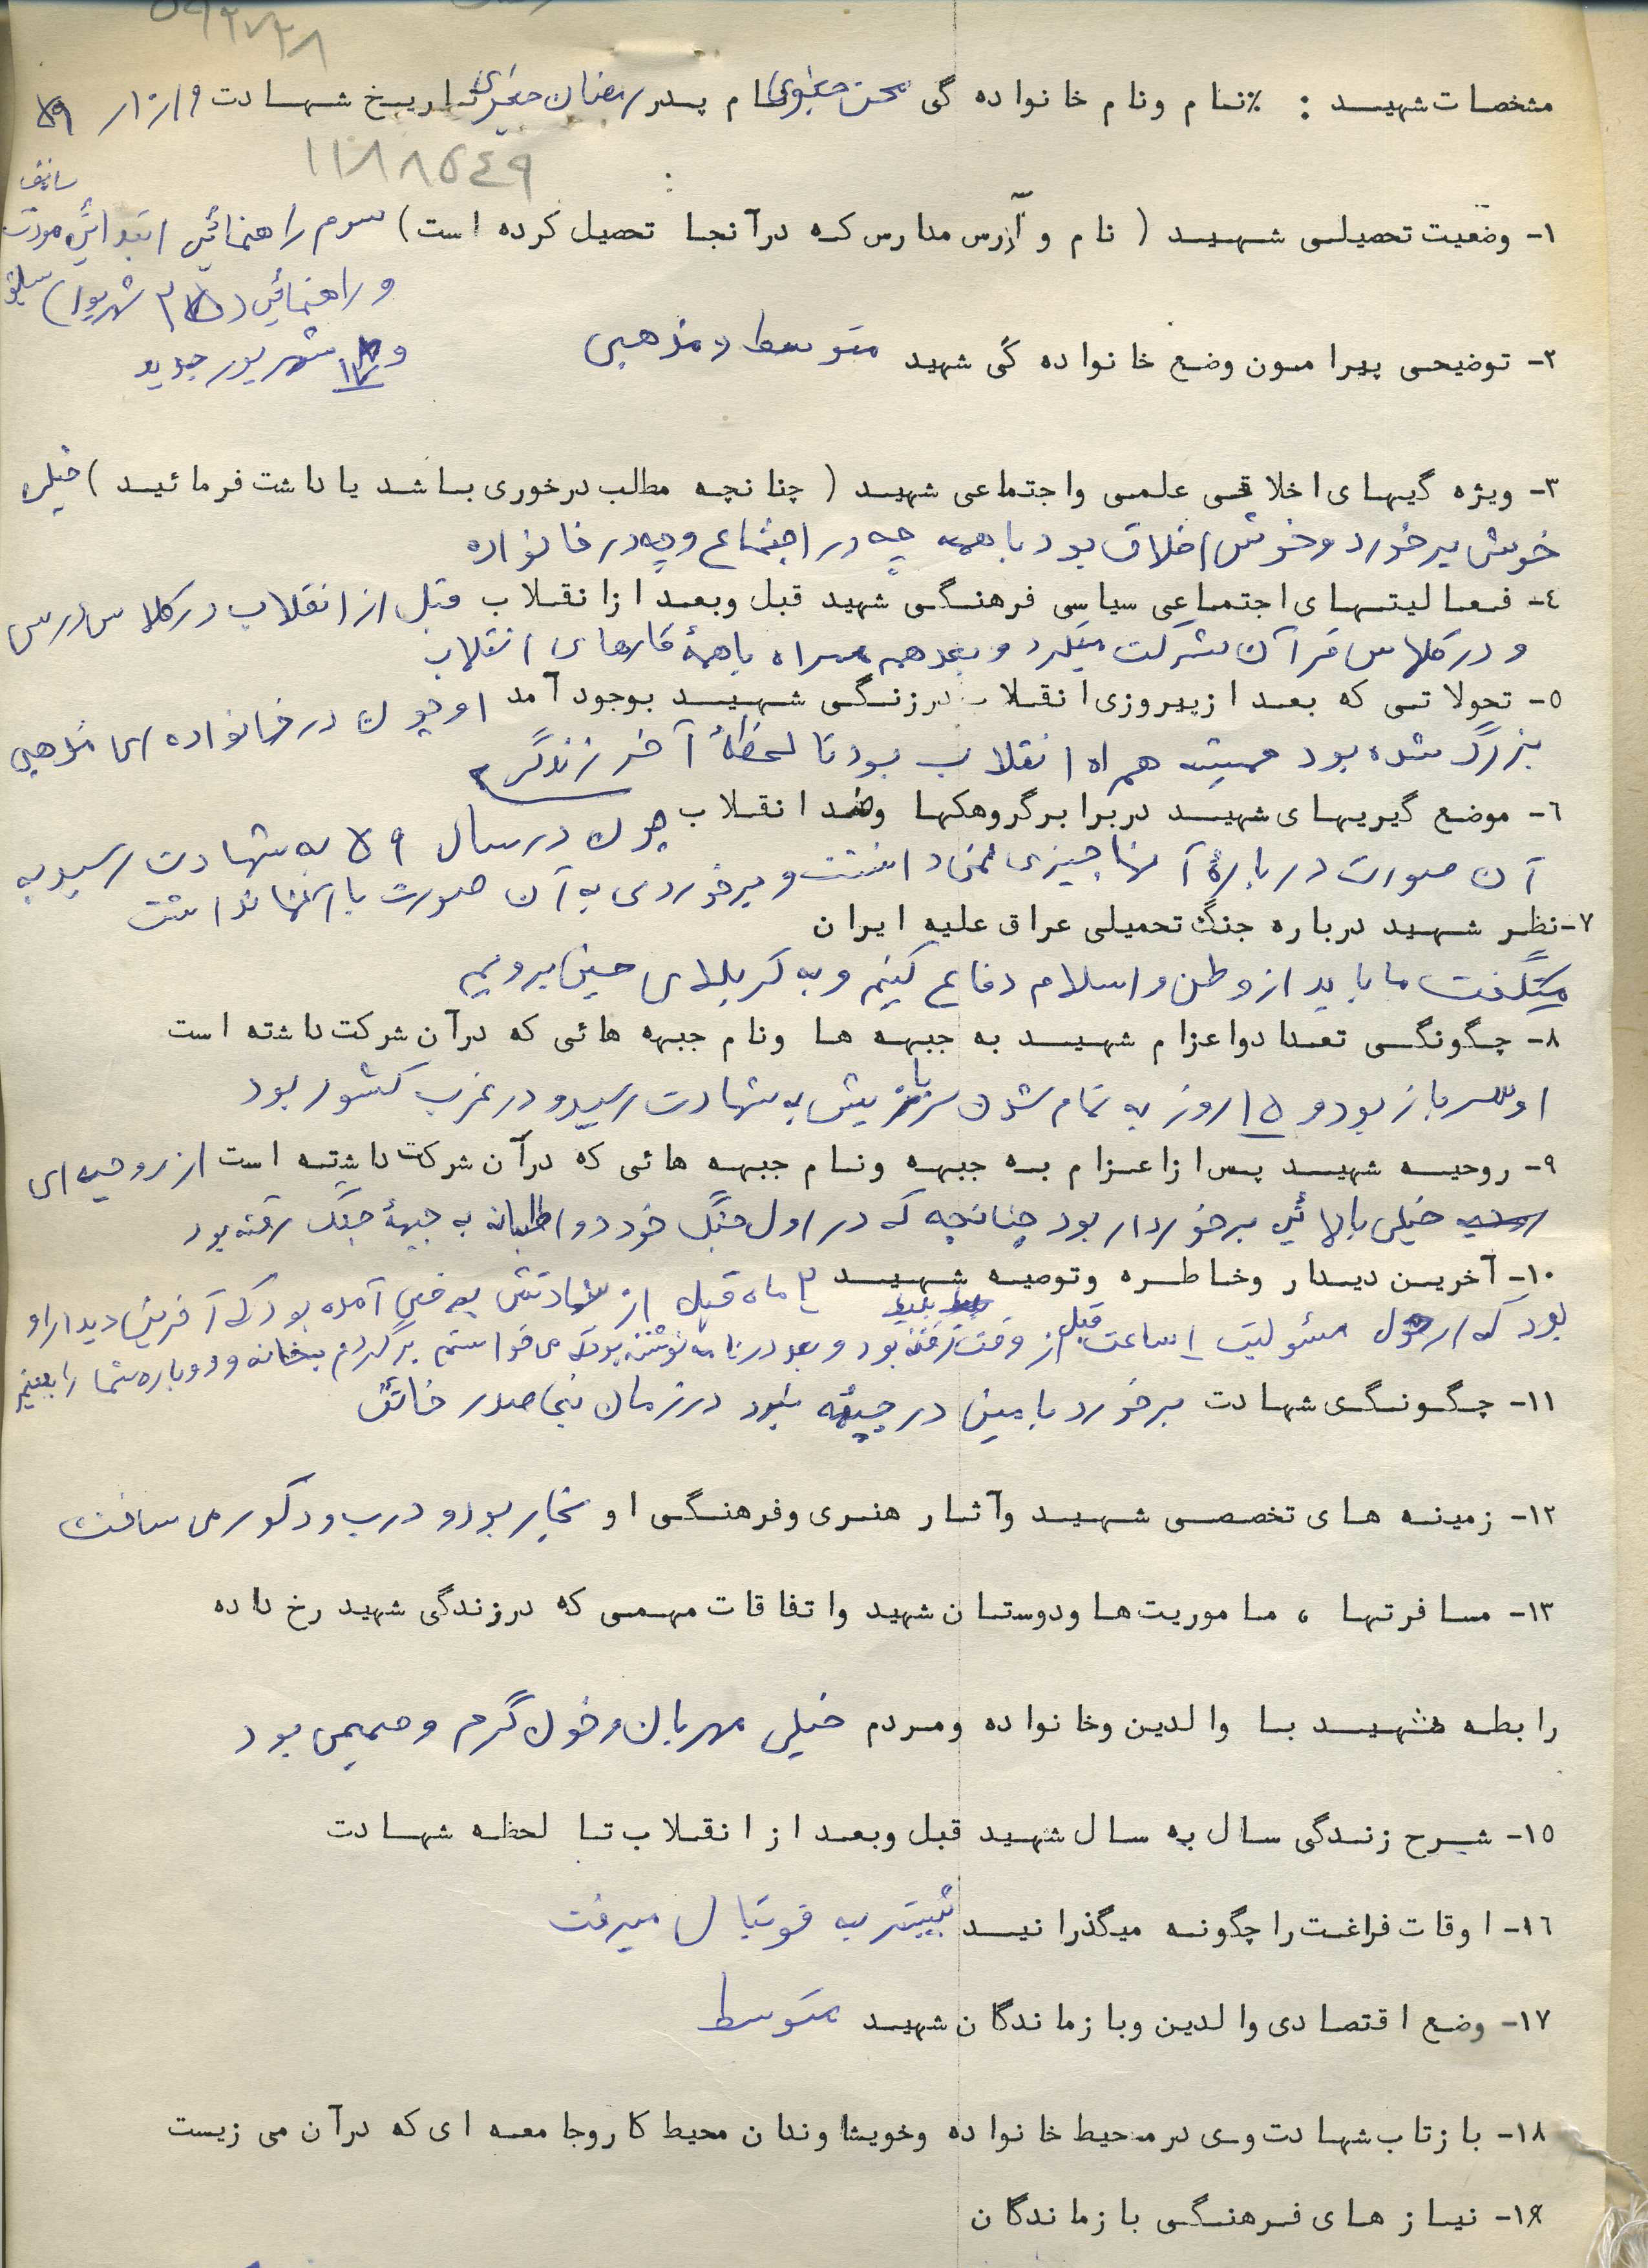 مشخصات شهید : نام ونام خانواده گی محسن جعفری نام پدر رمضان جعفری تاریخ شهادت ۵۹/۱۰/۹
۱۱۸۸۵٤۹
۱- وضعیت تحصیلی شهید ( نام و آدرس مدارس که درآنجا تحصیل کرده است) سوم راهنمائی ابتدائی مودت سابق
و راهنمائی (۲۵ شهریور) سابق
و ۱۷ شهریور جدید
۲- توضیحی پیرامون وضع خانواده گی شهید متوسط و مذهبی
۳- ویژه گیهای اخلاقی علمی واجتماعی شهید ( چنانچه مطالب درخوری باشد یاداشت فرمائید ) خیلی
خوش برخورد و خوش اخلاق بود با همه چه در اجتماع و چه در خانواده
٤- فعالیتهای اجتماعی سیاسی فرهنگی شهید قبل وبعد ازانقلاب قبل از انقلاب در کلاس درس
و در کلاس قرآن شرکت میکرد و بعد هم همراه با همهٔ کارهای انقلاب
٥- تحولاتی که بعد ازپیروزی انقلاب درزندگی شهید بوجود آمد او چون در خانواده ای مذهبی
بزرگ شده بود همیشه همراه انقلاب بود تا لحظهٔ آخر زندگی
٦- موضع گیریهای شهید دربرابرگروهکها وضد انقلاب چون در سال ۵۹ به شهادت رسید به
آن صورت دربارهٔ آنها چیزی نمی دانست و برخوردی به آن صورت با آنها نداشت
۷-نظر شهید درباره جنگ تحمیلی عراق علیه ایران
میگفت ما باید از وطن و اسلام دفاع کنیم و به کربلای حسین برویم
۸- چگونگی تعدادواعزام شهید به جبهه ها ونام جبهه هائی که درآن شرکت داشته است
او سرباز بود و ۱۵ روز به تمام شدن سربازیش به شهادت رسید و در غرب کشور بود
۹- روحیه شهید پس ازاعزام به جبهه ونام جبهه هائی که درآن شرکت داشته است از روحیه ای
خیلی بالائی برخوردار بود چنانچه که در اول جنگ خود داوطلبانه به جبههٔ جنگ رفته بود
۱۰- آخرین دیدار وخاطره وتوصیه شهید ۲ ماه قبل از شهادتش به مرخصی آمده بود که آخرین دیدار او
بود که از هول مسئولیت ۱ ساعت قبل از وقت بلیط رفته بود و بعد در نامه نوشته بود که می خواستم برگردم بخانه و دوباره شما را ببینم
۱۱- چگونگی شهادت برخورد با مین در جبهه نبرد در زمان بنی صدر خائن
۱۲- زمینه های تخصصی شهید وآثار هنری وفرهنگی او نجار بود و درب و دکور می ساخت
۱۳- مسافرتها ، ماموریت ها ودوستان شهید واتفاقات مهمی که درزندگی شهید رخ داده
رابطه شهید با والدین وخانواده ومردم خیلی مهربان و خون گرم و صمیمی بود
۱٥- شرح زندگی سال به سال شهید قبل وبعد از انقلاب تا لحظه شهادت
۱٦- اوقات فراغت را چگونه میگذرانید بیشتر به فوتبال میرفت
۱۷- وضع اقتصادی والدین وبازماندگان شهید متوسط
۱۸- بازتاب شهادت وی درمحیط خانواده وخویشاوندان محیط کاروجامعه ای که درآن می زیست
۱۹- نیازهای فرهنگی بازماندگان